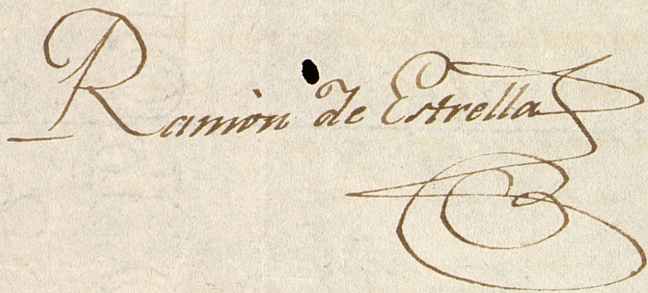 Ramón de Estrella